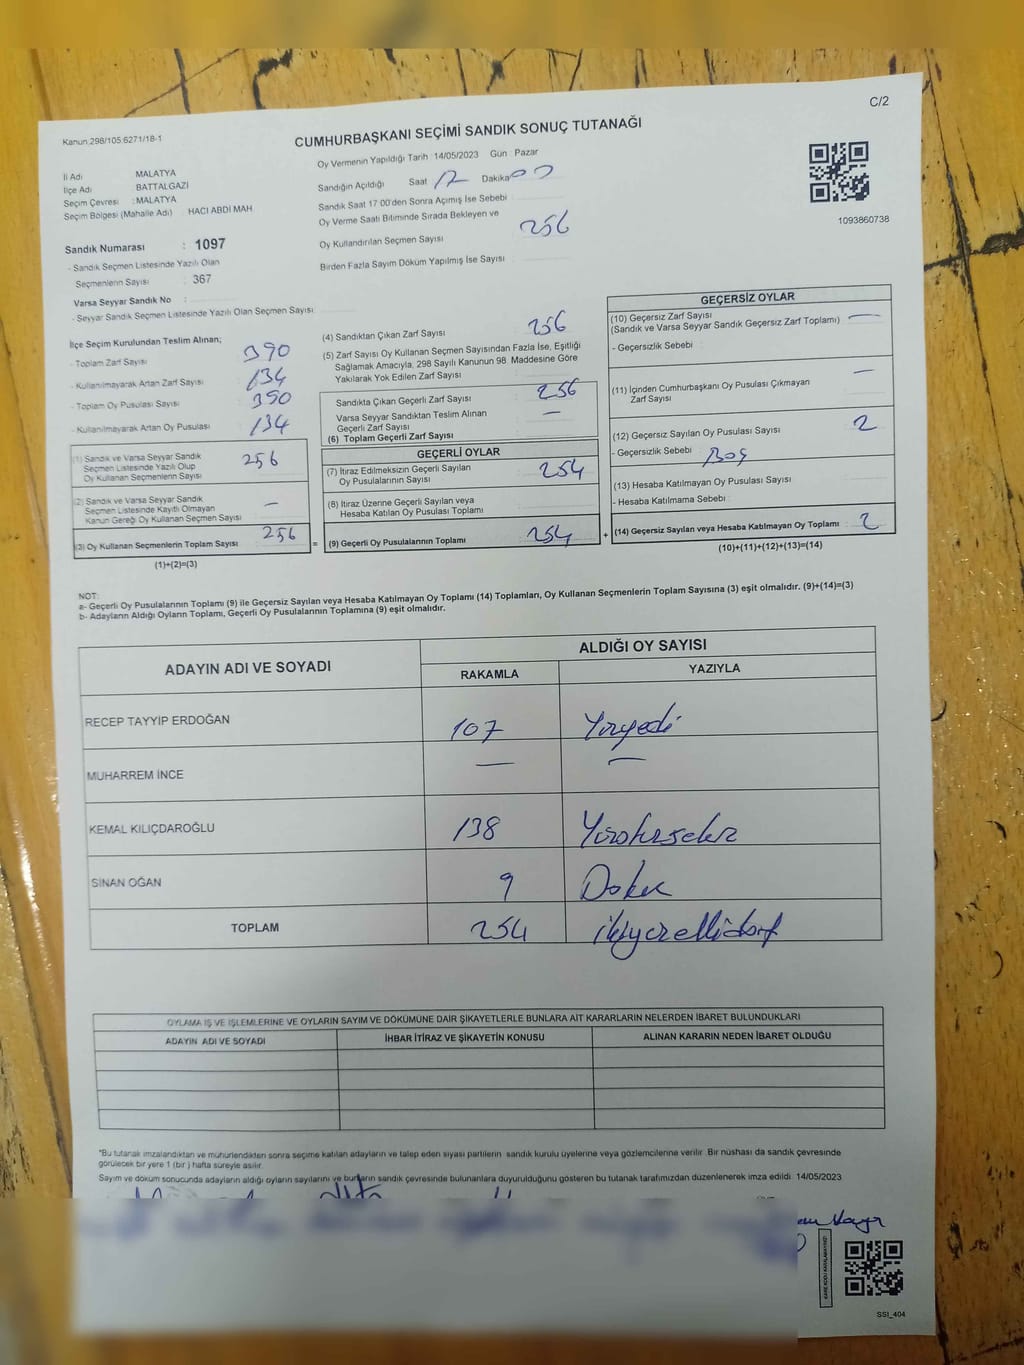 C/2
Kanun.298/105.6271/18-1
CUMHURBAŞKANI SEÇİMİ SANDIK SONUÇ TUTANAĞI
Oy Vermenin Yapıldığı Tarih 14/05/2023 Gün : Pazar
İl Adı : MALATYA
İlçe Adı : BATTALGAZİ
Seçim Çevresi : MALATYA
Seçim Bölgesi (Mahalle Adı) : HACI ABDİ MAH
Sandık Numarası : 1097
- Sandık Seçmen Listesinde Yazılı Olan
Seçmenlerin Sayısı : 367
Varsa Seyyar Sandık No :
- Seyyar Sandık Seçmen Listesinde Yazılı Olan Seçmen Sayısı:
Sandığın Açıldığı Saat 17 Dakika 00
Sandık Saat 17:00'den Sonra Açımış İse Sebebi :
Oy Verme Saati Bitiminde Sırada Bekleyen ve
Oy Kullandırılan Seçmen Sayısı : 256
Birden Fazla Sayım Döküm Yapılmış İse Sayısı :
1093860738
İlçe Seçim Kurulundan Teslim Alınan;
- Toplam Zarf Sayısı : 390
- Kullanılmayarak Artan Zarf Sayısı : 134
- Toplam Oy Pusulası Sayısı : 390
- Kullanılmayarak Artan Oy Pusulası : 134
(1) Sandık ve Varsa Seyyar Sandık
Seçmen Listesinde Yazılı Olup
Oy Kullanan Seçmenlerin Sayısı : 256
(2) Sandık ve Varsa Seyyar Sandık
Seçmen Listesinde Kayıtlı Olmayan
Kanun Gereği Oy Kullanan Seçmen Sayısı : —
(3) Oy Kullanan Seçmenlerin Toplam Sayısı : 256
(1)+(2)=(3)
(4) Sandıktan Çıkan Zarf Sayısı : 256
(5) Zarf Sayısı Oy Kullanan Seçmen Sayısından Fazla İse, Eşitliği
Sağlamak Amacıyla, 298 Sayılı Kanunun 98. Maddesine Göre
Yakılarak Yok Edilen Zarf Sayısı :
Sandıkta Çıkan Geçerli Zarf Sayısı : 256
Varsa Seyyar Sandıktan Teslim Alınan
Geçerli Zarf Sayısı : —
(6) Toplam Geçerli Zarf Sayısı :
GEÇERLİ OYLAR
(7) İtiraz Edilmeksizin Geçerli Sayılan
Oy Pusulalarının Sayısı : 254
(8) İtiraz Üzerine Geçerli Sayılan veya
Hesaba Katılan Oy Pusulası Toplamı :
= (9) Geçerli Oy Pusulalarının Toplamı : 254
GEÇERSİZ OYLAR
(10) Geçersiz Zarf Sayısı : —
(Sandık ve Varsa Seyyar Sandık Geçersiz Zarf Toplamı)
- Geçersizlik Sebebi :
(11) İçinden Cumhurbaşkanı Oy Pusulası Çıkmayan : —
Zarf Sayısı
(12) Geçersiz Sayılan Oy Pusulası Sayısı : 2
- Geçersizlik Sebebi : Boş
(13) Hesaba Katılmayan Oy Pusulası Sayısı :
- Hesaba Katılmama Sebebi :
+ (14) Geçersiz Sayılan veya Hesaba Katılmayan Oy Toplamı : 2
(10)+(11)+(12)+(13)=(14)
NOT:
a- Geçerli Oy Pusulalarının Toplamı (9) ile Geçersiz Sayılan veya Hesaba Katılmayan Oy Toplamı (14) Toplamları, Oy Kullanan Seçmenlerin Toplam Sayısına (3) eşit olmalıdır. (9)+(14)=(3)
b- Adayların Aldığı Oyların Toplamı, Geçerli Oy Pusulalarının Toplamına (9) eşit olmalıdır.
ADAYIN ADI VE SOYADI
ALDIĞI OY SAYISI
RAKAMLA YAZIYLA
RECEP TAYYİP ERDOĞAN 107 Yüzyedi
MUHARREM İNCE — —
KEMAL KILIÇDAROĞLU 138
SİNAN OĞAN 9 Dokuz
TOPLAM 254 ikiyüzellidört
OYLAMA İŞ VE İŞLEMLERİNE VE OYLARIN SAYIM VE DÖKÜMÜNE DAİR ŞİKAYETLERLE BUNLARA AİT KARARLARIN NELERDEN İBARET BULUNDUKLARI
ADAYIN ADI VE SOYADI İHBAR İTİRAZ VE ŞİKAYETİN KONUSU ALINAN KARARIN NEDEN İBARET OLDUĞU
*Bu tutanak imzalandıktan ve mühürlendikten sonra seçime katılan adayların ve talep eden siyasi partilerin sandık kurulu üyelerine veya gözlemcilerine verilir. Bir nüshası da sandık çevresinde
görülecek bir yere 1 (bir ) hafta süreyle asılır.
Sayım ve döküm sonucunda adayların aldığı oyların sayılarını ve bunların sandık çevresinde bulunanlara duyurulduğunu gösteren bu tutanak tarafımızdan düzenlenerek imza edildi. 14/05/2023
SSİ_404